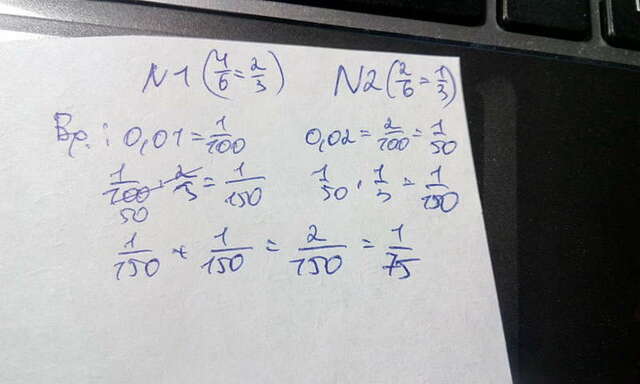 N1 (4/6 = 2/3) N2 (2/6 = 1/3)
Вр.: 0,01 = 1/100 0,02 = 2/100 = 1/50
1/100 50 · 2/3 = 1/150 1/50 · 1/3 = 1/150
1/150 + 1/150 = 2/150 = 1/75